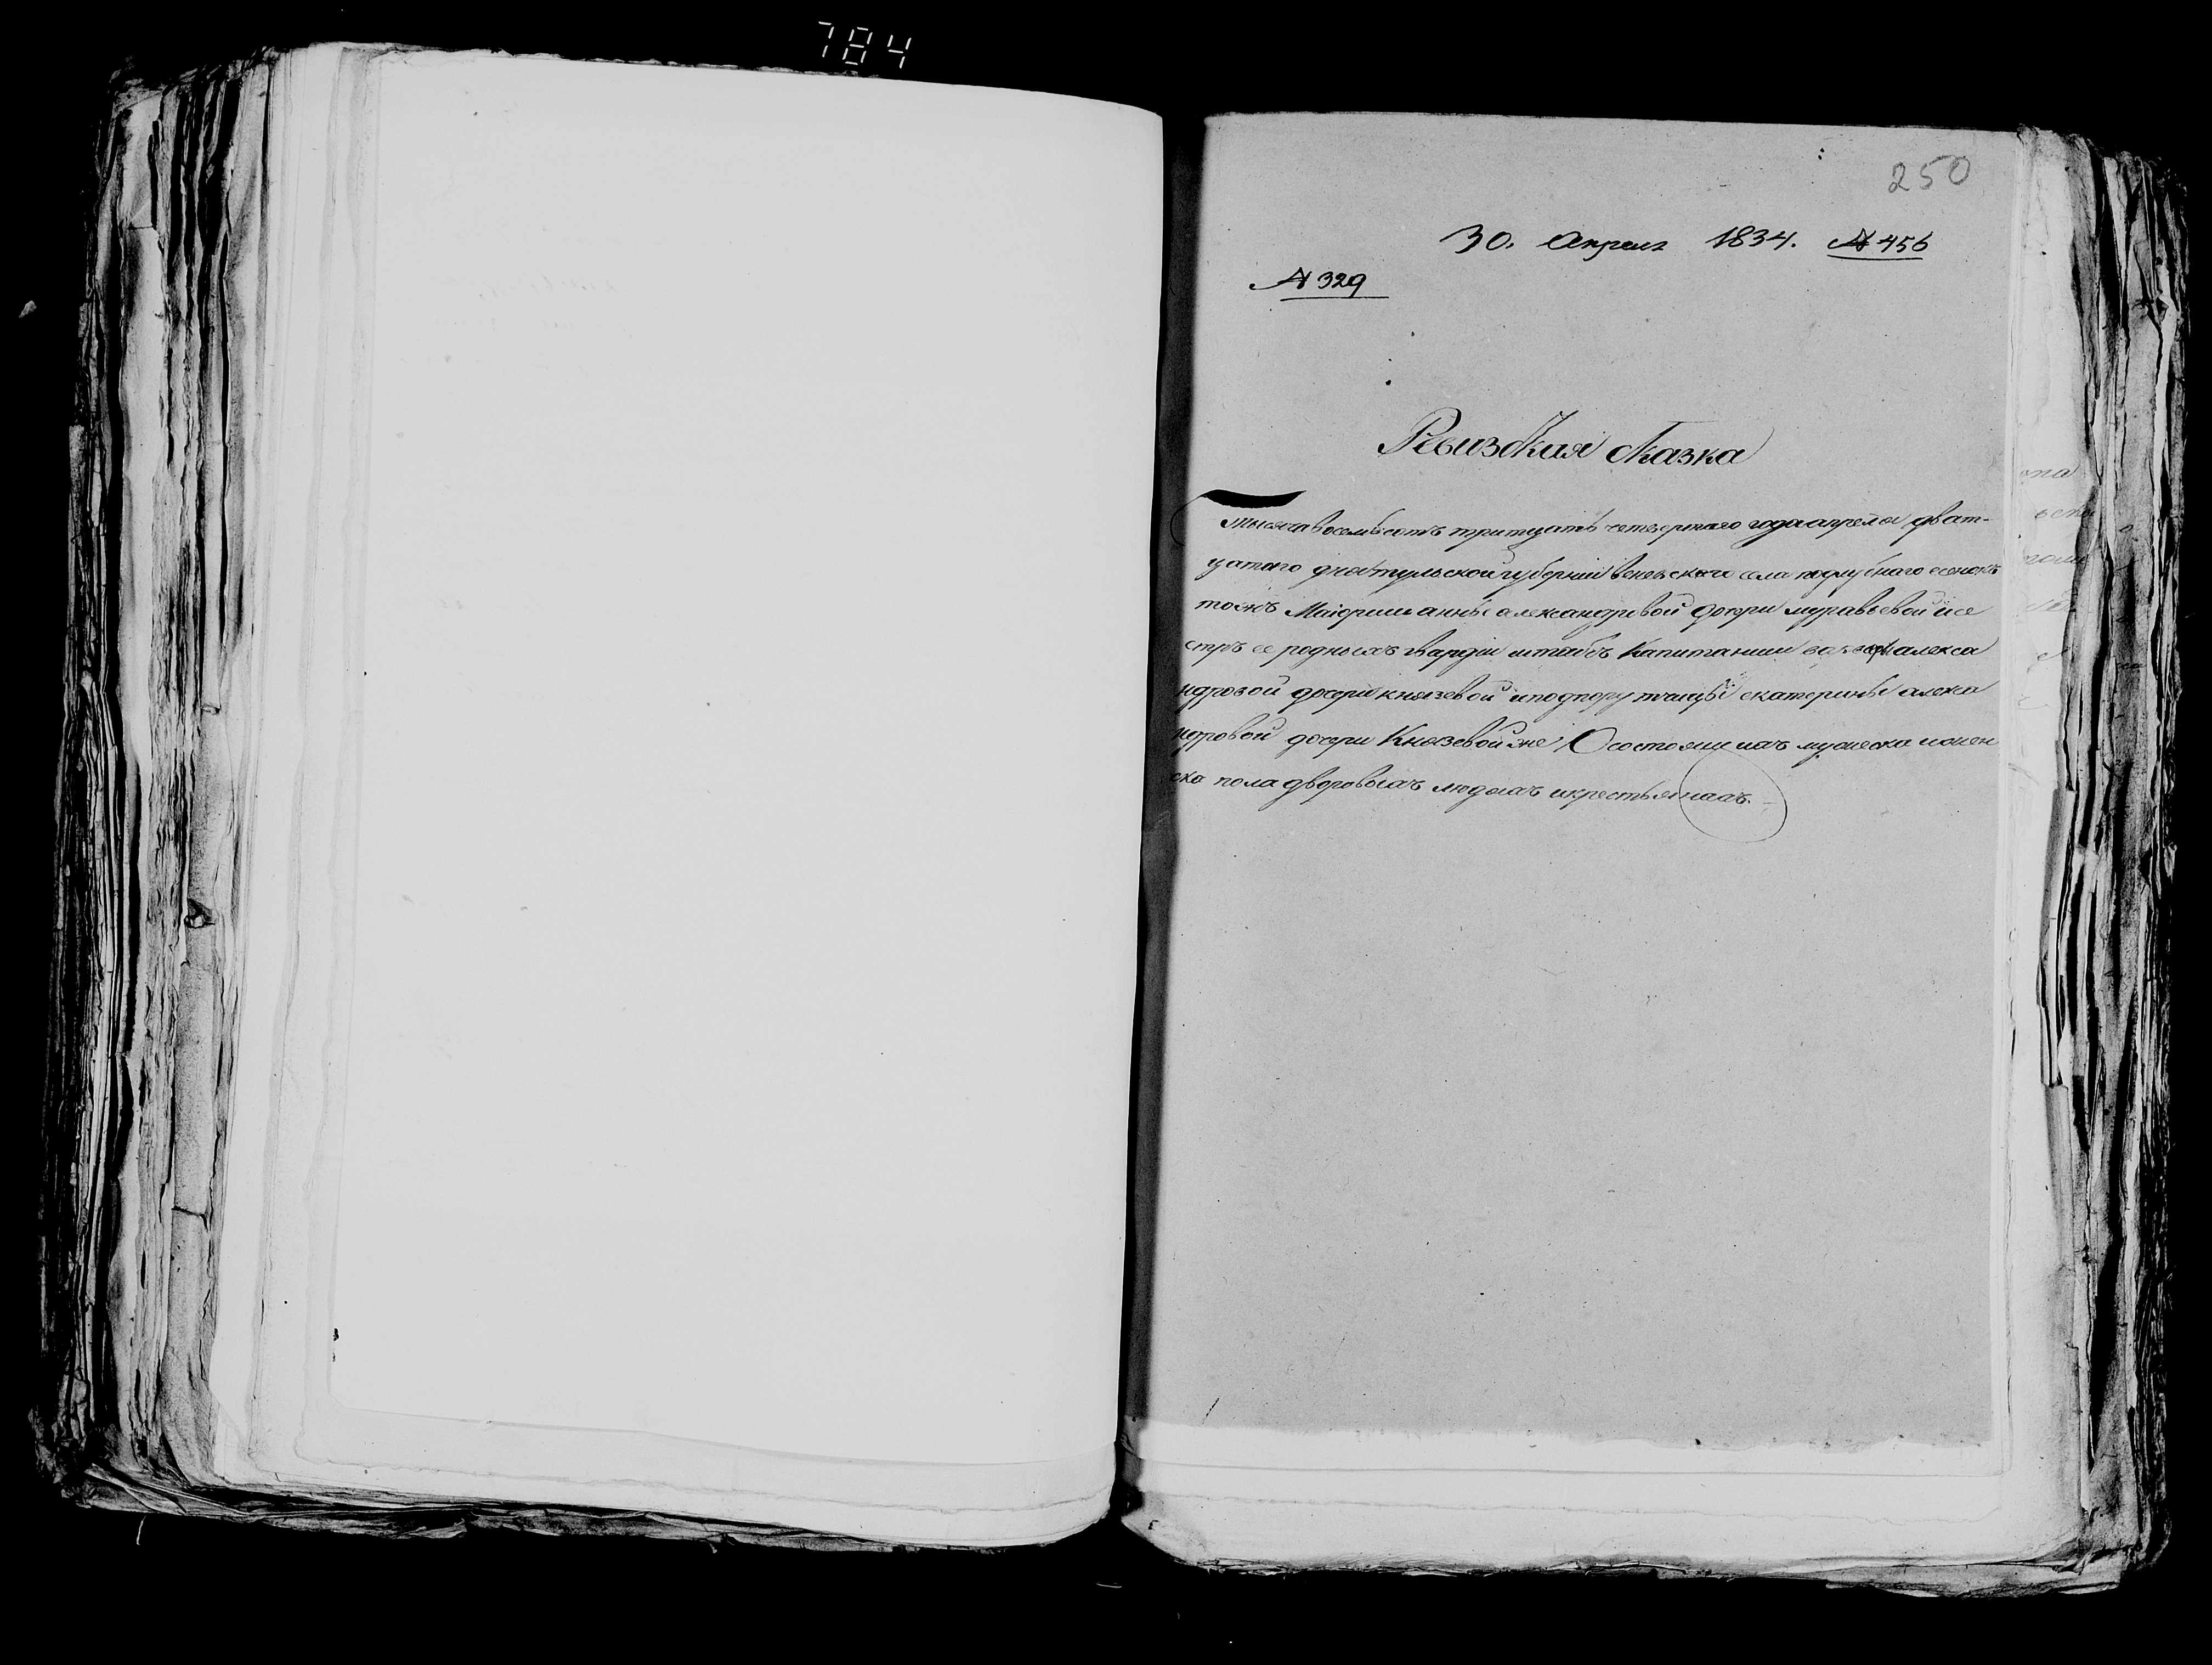 784
250
30. Апреля 1834. № 456
№ 329
Ревизская сказка
Тысяча восемьсотъ тритцать четвертаго года апреля дват-
цатаго дня тульской губернии Веневскаго села подлубнаго
тожъ Маіорши анны александровой дочери муравьевой исе
стръ ее родныхъ гвардіи штабсъ Капитанши алекса
ндровой дочери князевой иподпорутчицы екатерины алекса
ндровой дочери Князевой же О состоящихъ мужеска иженс
ка пола дворовыхъ людяхъ икрестьянахъ.